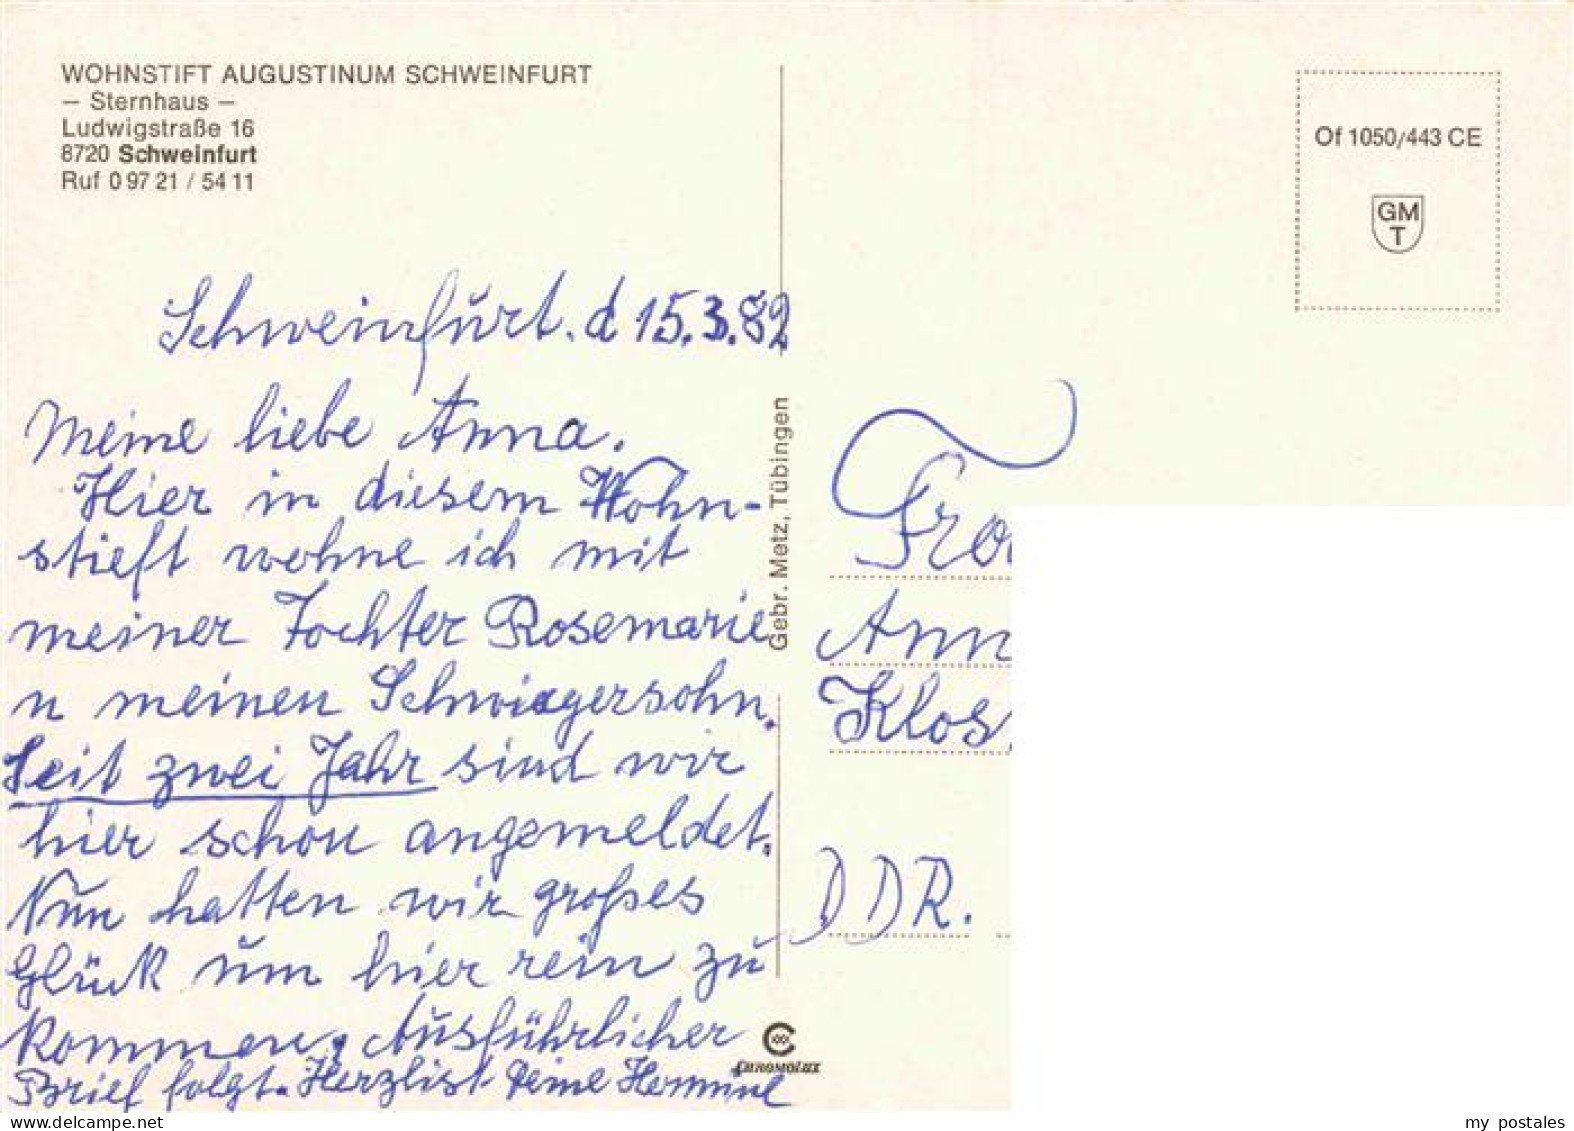 WOHNSTIFT AUGUSTINUM SCHWEINFURT
— Sternhaus —
Ludwigstraße 16
8720 Schweinfurt
Ruf 0 97 21 / 54 11
Schweinfurt. d 15.3.82
Meine liebe Anna.
Hier in diesem Wohn-
stieft wohne ich mit
meiner Tochter Rosemarie
u meinen Schwiegersohn.
Seit zwei Jahr sind wir
hier schon angemeldet.
Nun hatten wir großes
Glück um hier rein zu
kommen. Ausführlicher
Brief folgt. Herzlist Deine Hermine
Gebr. Metz, Tübingen
Chromolux
Of 1050/443 CE
GM
T
Frau
Ann
Klos
DDR.
my postales